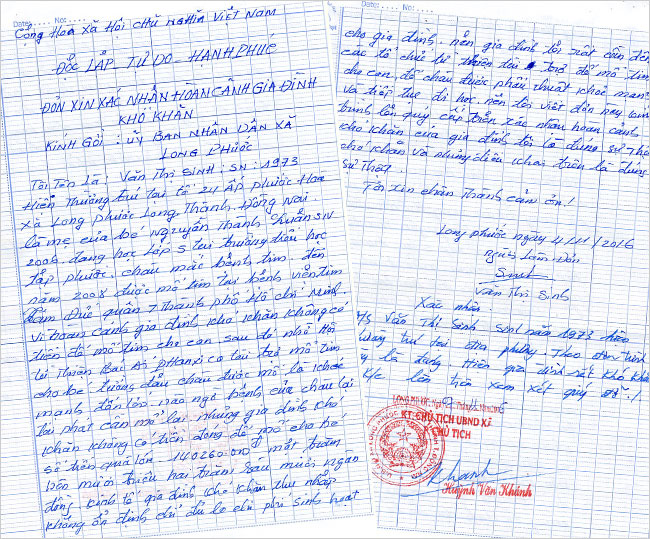 Date: No:
Cộng Hoà Xã Hội Chủ nghĩa Việt Nam
ĐỘC LẬP - TỰ DO - HẠNH PHÚC
ĐƠN XIN XÁC NHẬN HOÀN CẢNH GIA ĐÌNH
KHÓ KHĂN
KÍNH GỞI : UỶ BAN NHÂN DÂN XÃ
LONG PHƯỚC
Tôi Tên Là : Văn Thị SINH : SN : 1973
Hiện Thường trú tại tổ 24 ấp phước Hoà
xã Long phước Long Thành Đồng Nai.
là mẹ của bé Nguyễn Thành Chuẩn SN
2006. đang học lớp 5 tại trường tiểu học
tập phước. cháu mắc bệnh tim. đến
năm 2008 được mổ tim tại bệnh viện tim
Tâm Đức quận 7 Thành phố Hồ Chí Minh
vì hoàn cảnh gia đình khó khăn không có
tiền để mổ tim cho con sau đó nhờ Hội
từ Thiện Bác Ái PHanxi cô tài trợ mổ tim
cho bé tưởng đâu cháu được mổ là khoẻ
mạnh đến lớn nào ngờ bệnh của cháu lại
tái phát cần mổ lại nhưng gia đình khó
khăn không có tiền đóng để mổ cho bé
số tiền quá lớn 140.260.000đ một trăm
bốn mươi triệu hai trăm sáu mươi ngàn
đồng kinh tế gia đình khó khăn thu nhập
không ổn định chỉ đủ lo chi phí sinh hoạt
Date: No:
cho gia đình. nên gia đình tôi rất cần đến
các tổ chức từ thiện tài trợ để mổ tim
cho con. để cháu được phẫu thuật khoẻ mạnh
và tiếp tục đi học nên tôi viết đơn này
trình lên quý cấp trên xác nhận hoàn cảnh
khó khăn của gia đình tôi là đúng sự Thật
khó khăn và những điều khai trên là đúng
sự Thật.
Tôi xin chân Thành cảm ơn!
Long phước ngày 4/11/2016
Người Làm Đơn
Sinh
Văn Thị Sinh
Xác nhận
Văn Thị Sinh sinh năm 1973 hiện
thường trú tại địa phương. Theo đơn trình
là đúng. Hiện gia đình rất khó khăn
K/c lên trên xem xét giúp đỡ.!
LONG PHƯỚC, Ngày
KT. CHỦ TỊCH UBND XÃ
CHỦ TỊCH
Khanh
Huỳnh Văn Khánh